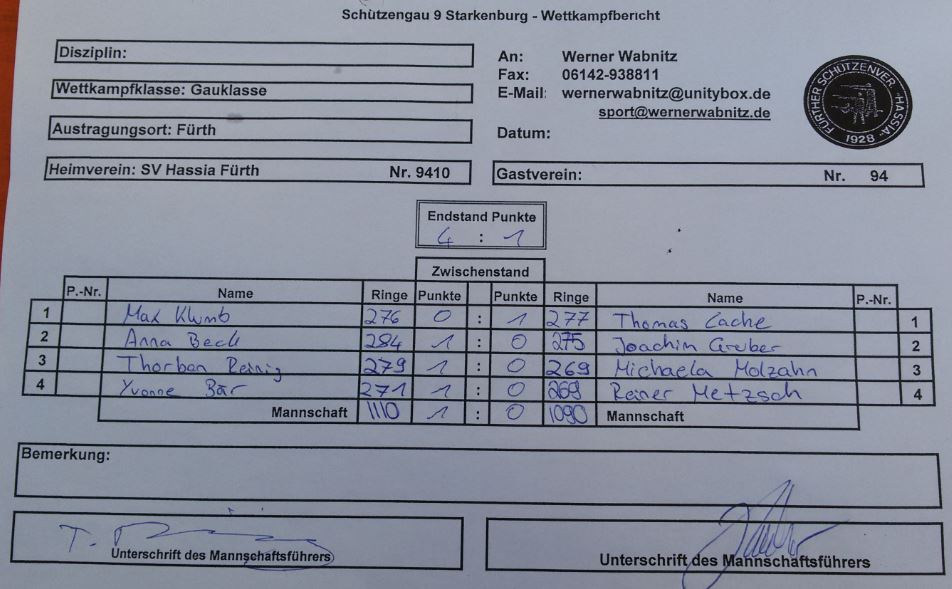 Schützengau 9 Starkenburg - Wettkampfbericht
Disziplin:
An: Werner Wabnitz
Fax: 06142-938811
Wettkampfklasse: Gauklasse
E-Mail: wernerwabnitz@unitybox.de
sport@wernerwabnitz.de
Austragungsort: Fürth
Datum:
FÜRTHER SCHÜTZENVER. HASSIA
1928
Heimverein: SV Hassia Fürth Nr. 9410
Gastverein: Nr. 94
Endstand Punkte
4 : 1
Zwischenstand
P.-Nr. Name Ringe Punkte Punkte Ringe Name P.-Nr.
1 Max Klumb 276 0 : 1 277 Thomas Lache 1
2 Anna Beck 284 1 : 0 275 Joachim Gruber 2
3 Thorben Reinig 279 1 : 0 269 Michaela Molzahn 3
4 Yvonne Bär 271 1 : 0 269 Reiner Metzsch 4
Mannschaft 1110 1 : 0 1090 Mannschaft
Bemerkung:
T.
Unterschrift des Mannschaftsführers
Unterschrift des Mannschaftsführers